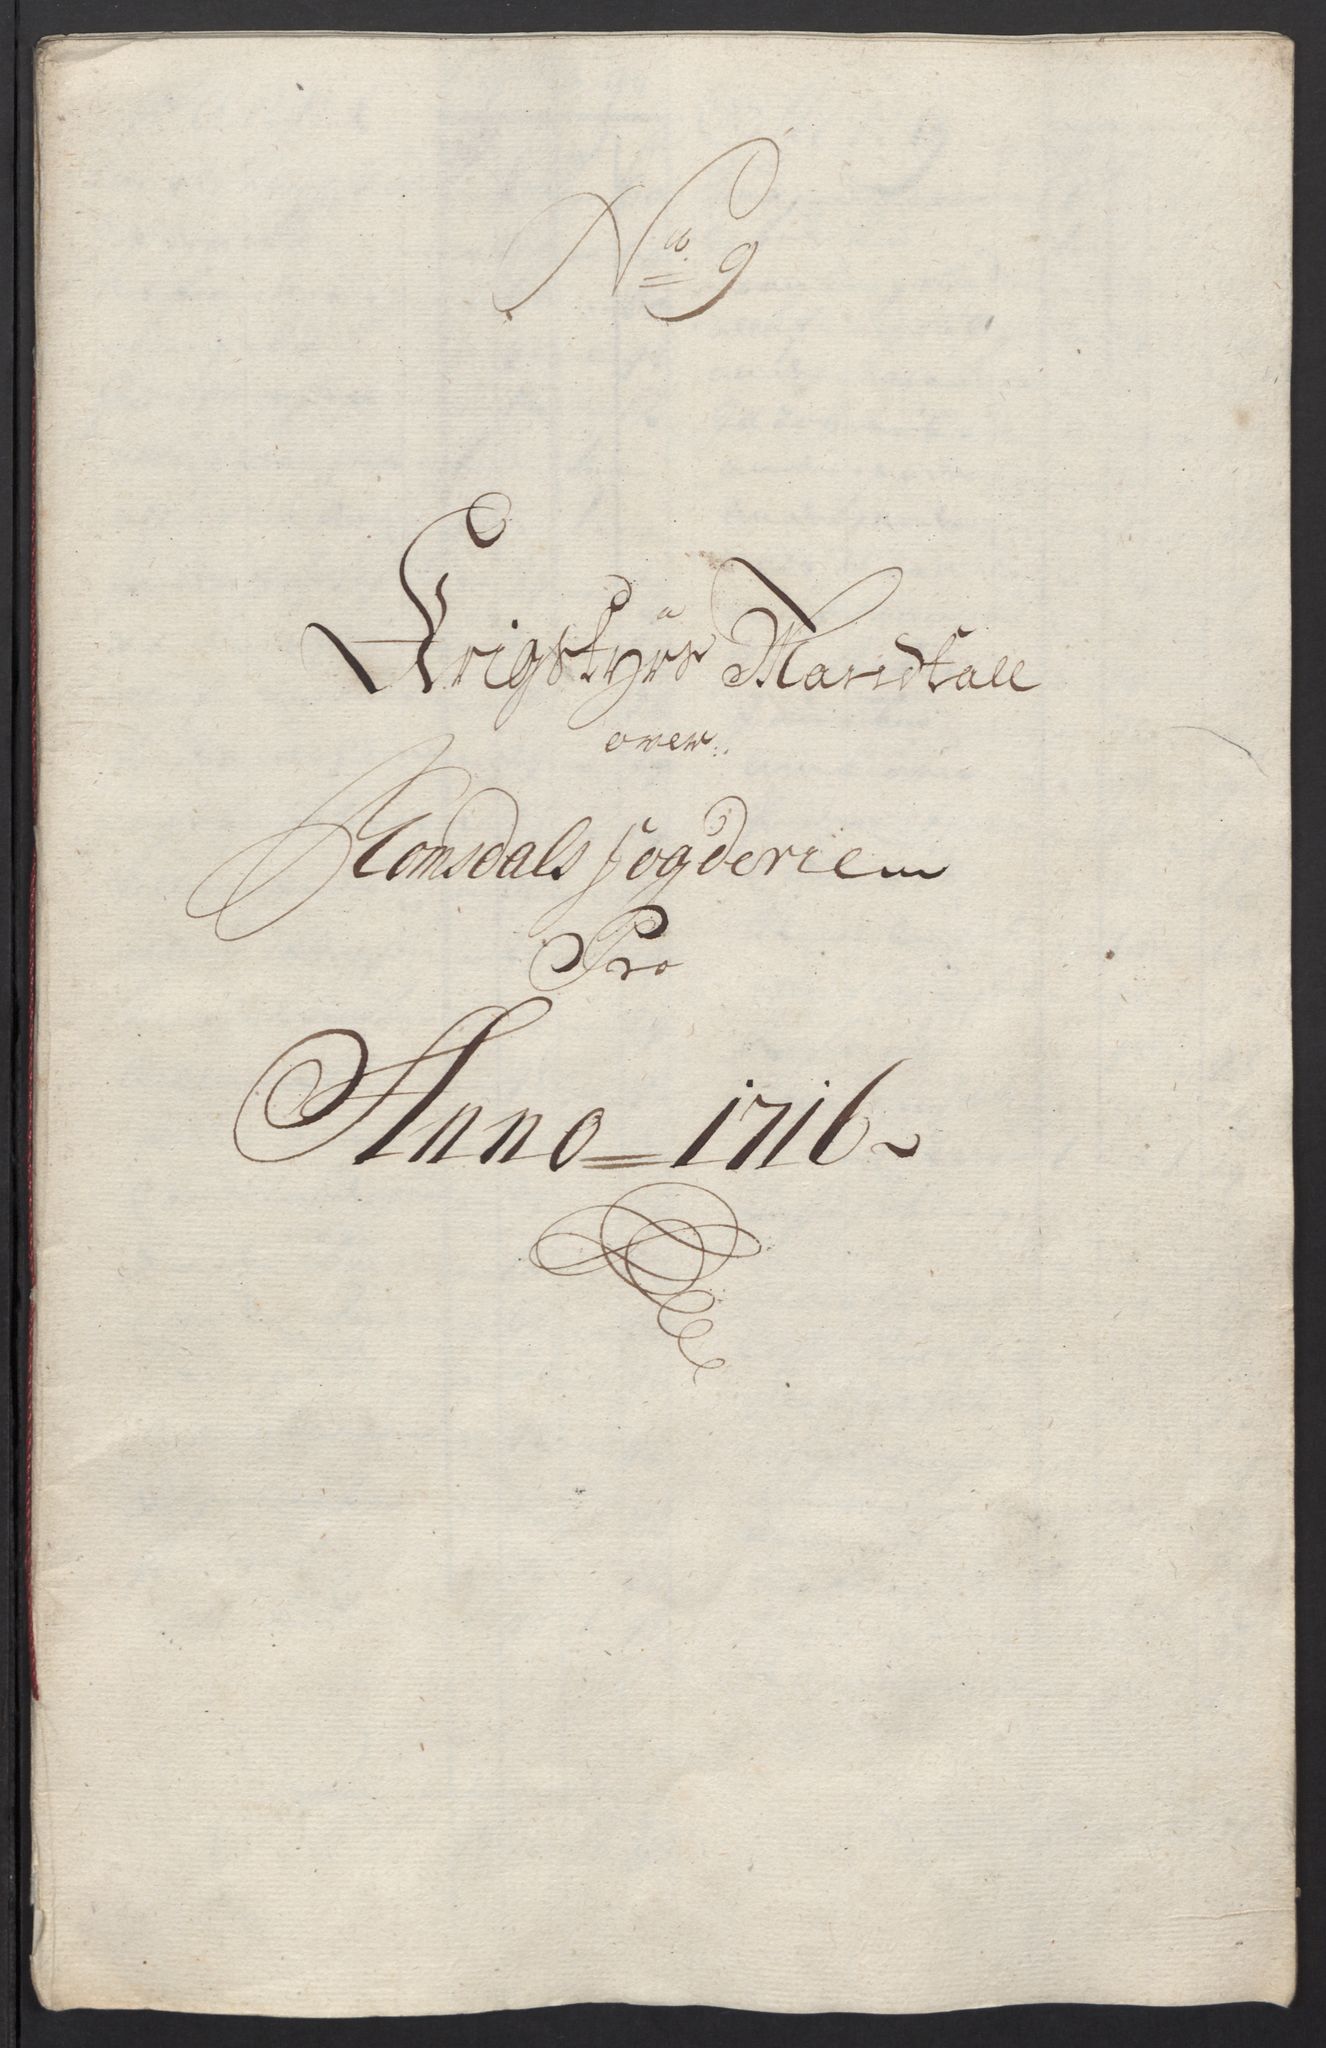 No. 9
Krigstyrs Mandtall
over
Romsdals fogderie
Pro
Anno 1716